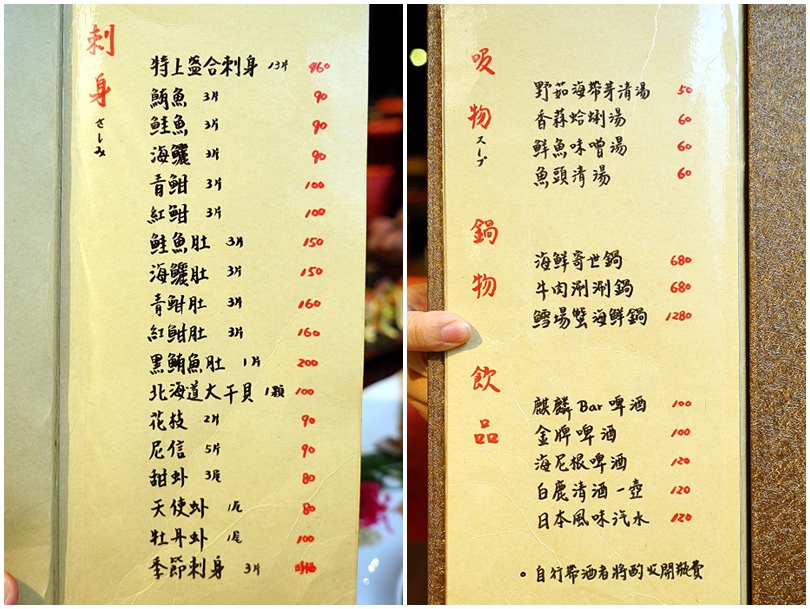 刺身
さしみ
特上盛合刺身 13片 960
鮪魚 3片 90
鮭魚 3片 90
海鱺 3片 90
青魽 3片 100
紅魽 3片 100
鮭魚肚 3片 150
海鱺肚 3片 150
青魽肚 3片 160
紅魽肚 3片 160
黑鮪魚肚 1片 200
北海道大干貝 1顆 100
花枝 2片 90
尼信 5片 90
甜虾 3尾 80
天使虾 1尾 80
牡丹虾 1尾 100
季節刺身 3片 時價
吸物
スープ
野茹海帶芽清湯 50
香蒜蛤蜊湯 60
鮮魚味噌湯 60
魚頭清湯 60
鍋物
海鮮哥世鍋 680
牛肉涮涮鍋 680
鱈場蟹海鮮鍋 1280
飲品
麒麟Bar啤酒 100
金牌啤酒 100
海尼根啤酒 120
白鹿清酒一壺 120
日本風味汽水 120
。自行帶酒者將酌收開瓶費